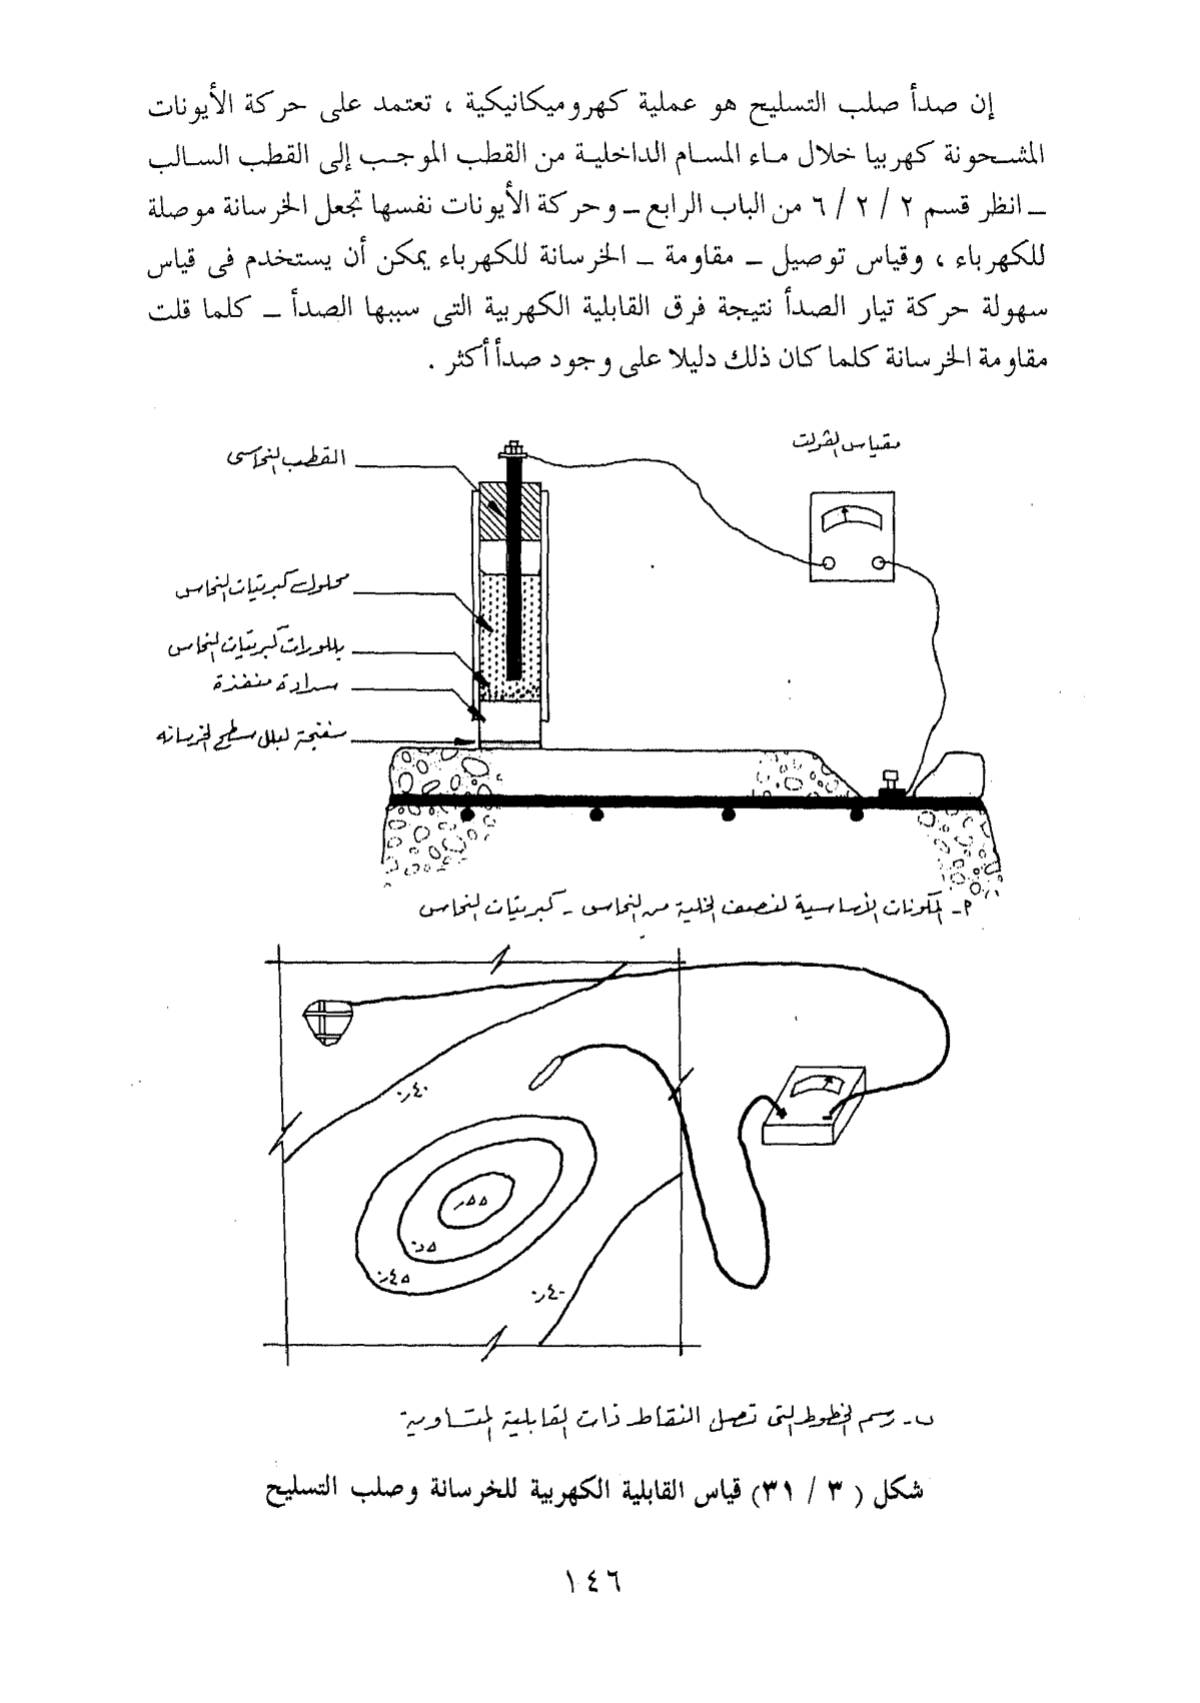 إن صدأ صلب التسليح هو عملية كهروميكانيكية ، تعتمد على حركة الأيونات
المشحونة كهربيا خلال ماء المسام الداخلية من القطب الموجب إلى القطب السالب
ــ انظر قسم ٢ / ٢ / ٦ من الباب الرابع ــ وحركة الأيونات نفسها تجعل الخرسانة موصلة
للكهرباء ، وقياس توصيل ــ مقاومة ــ الخرسانة للكهرباء يمكن أن يستخدم فى قياس
سهولة حركة تيار الصدأ نتيجة فرق القابلية الكهربية التى سببها الصدأ ــ كلما قلت
مقاومة الخرسانة كلما كان ذلك دليلا على وجود صدأ أكثر .
مقياس الڤولت
القطب النحاسى
محلول كبريتيات النحاس
بللورات كبريتيات النحاس
سدادة منفذة
سفنجة لبلل سطح الخرسانه
م- المكونات الأساسية لنصف الخلية من النحاس - كبريتيات النحاس
٠٫٤٠
٠٫٥٥
٠٫٥
٠٫٤٥
٠٫٤٠
ب- رسم الخطوط التى تصل النقاط ذات القابلية المتساوية
شكل ( ٣ / ٣١) قياس القابلية الكهربية للخرسانة وصلب التسليح
١٤٦